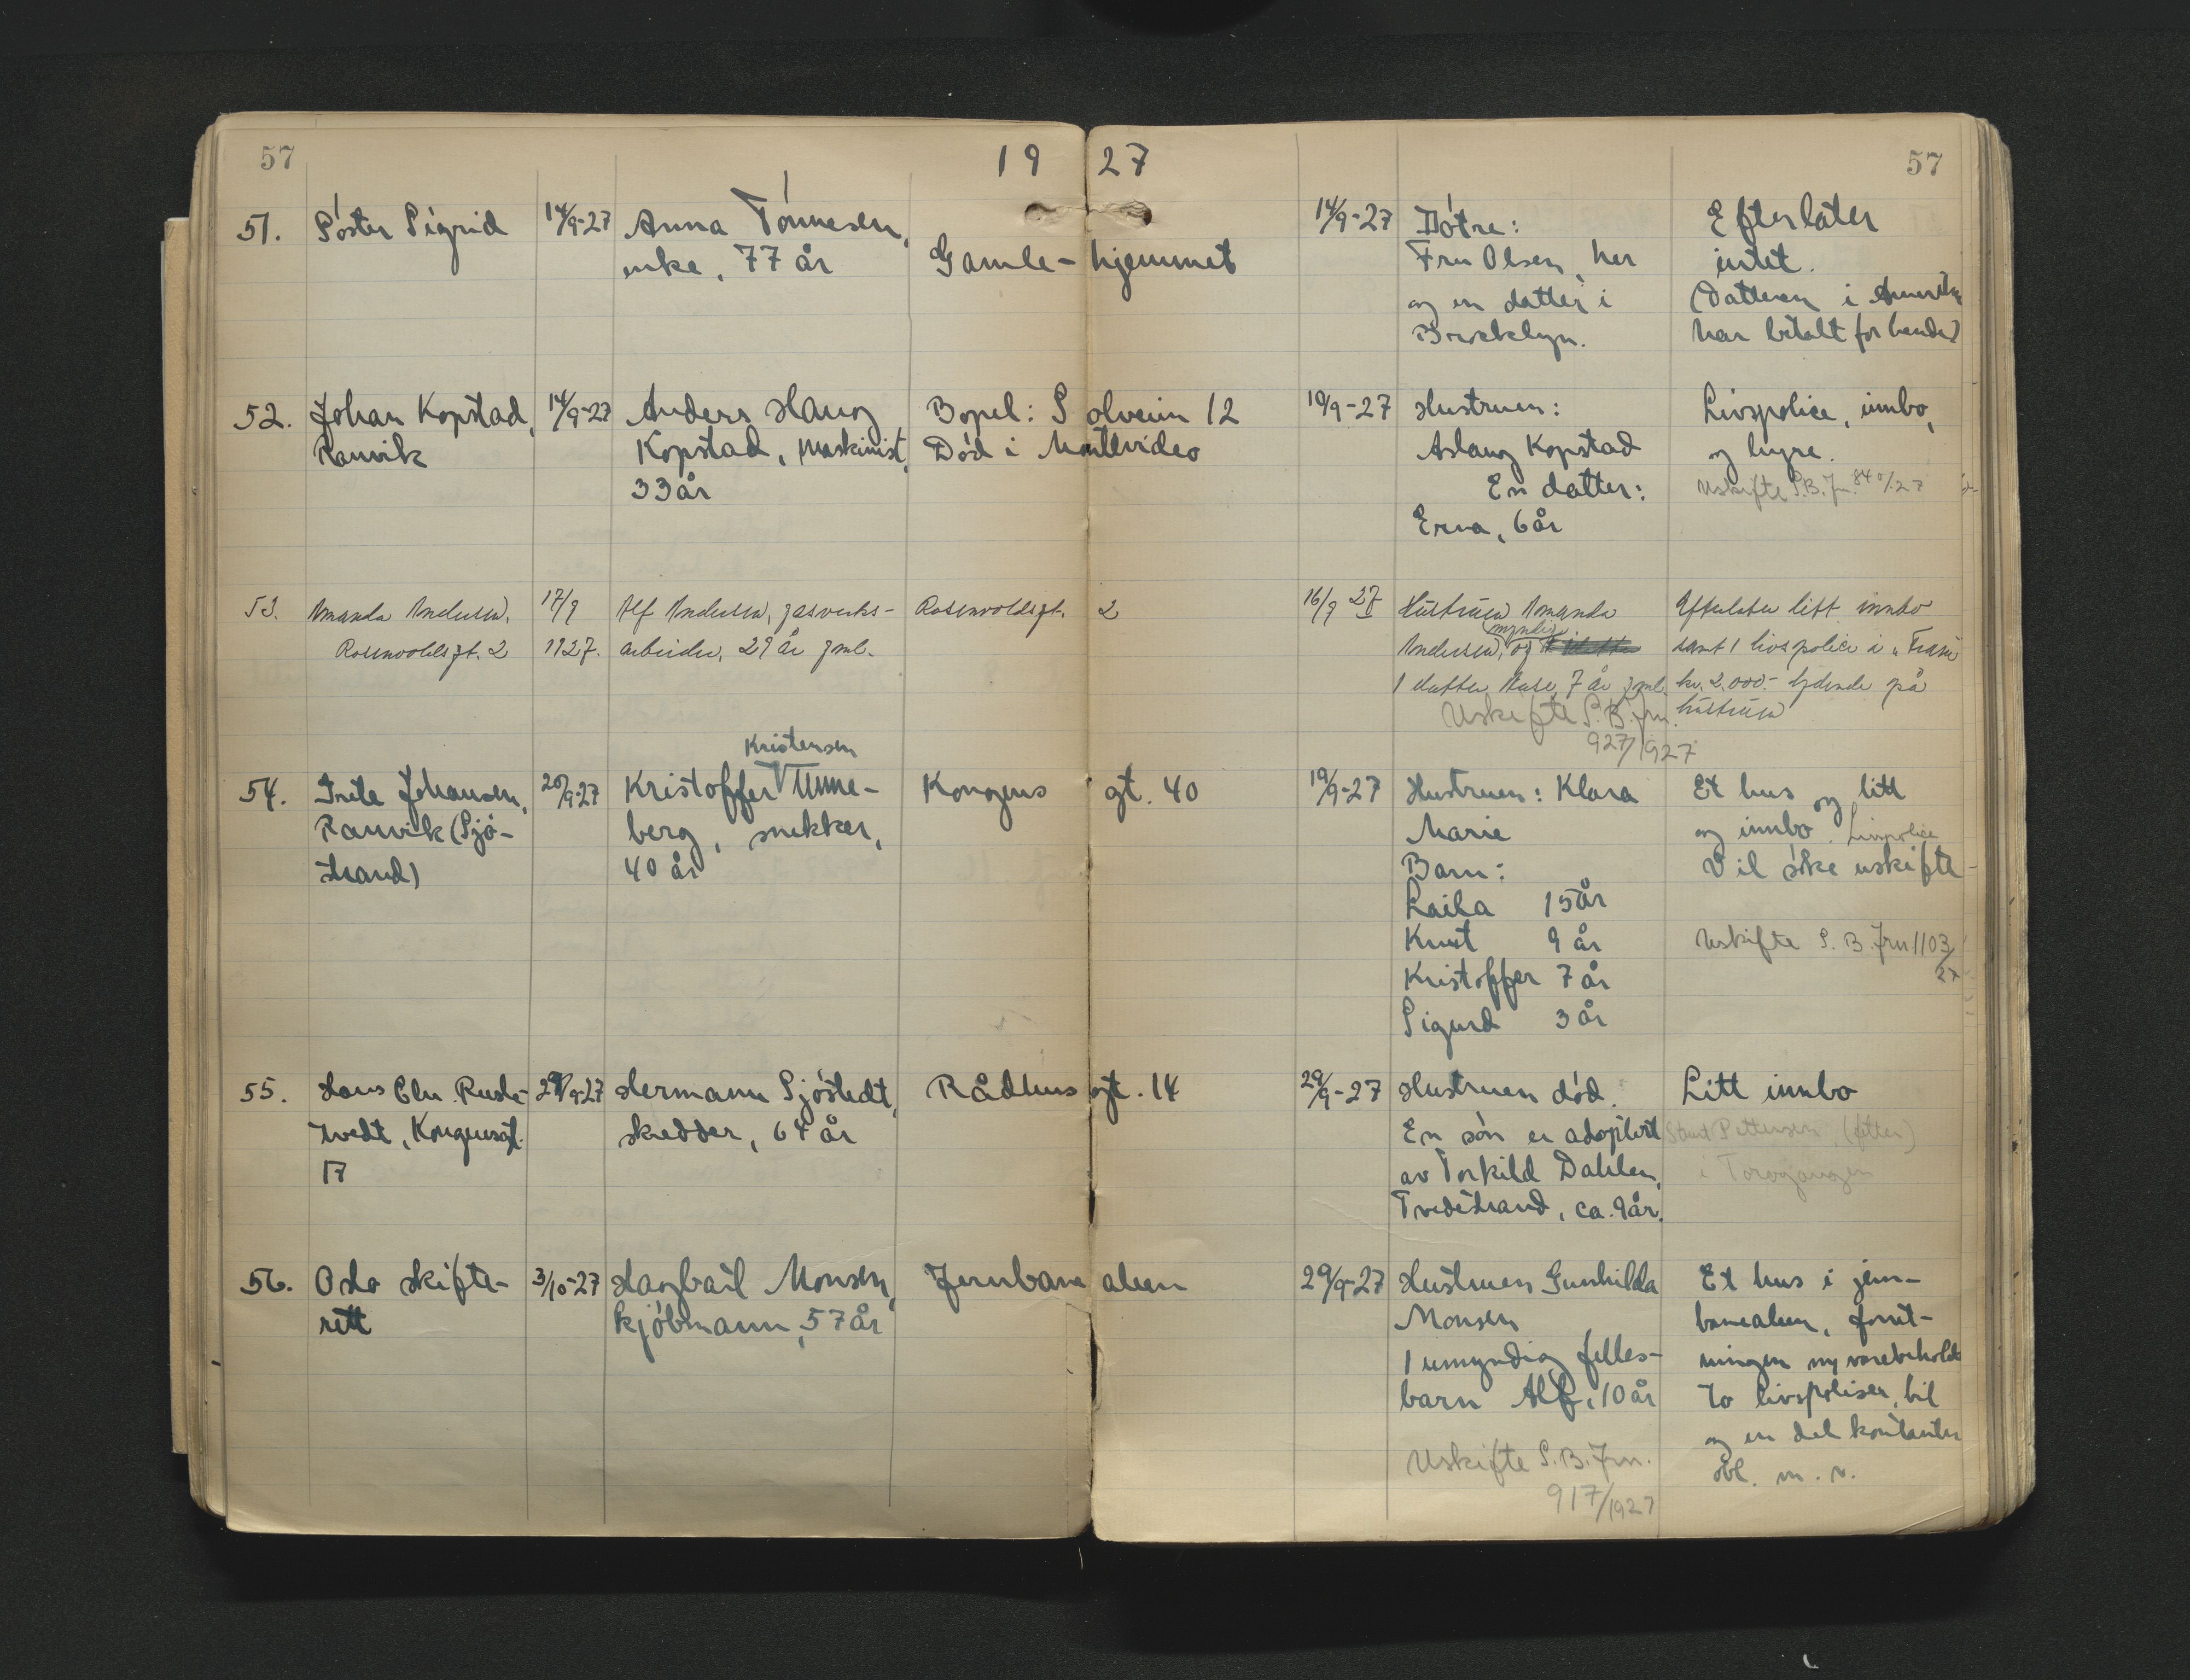 57
19 27
57
51. Søster Sigrid 14/9-27 Anna Tønnesen, 14/9-27 Døtre: Efterlater
enke, 77 år Gamle-hjemmet Fru Olsen, her intet.
og en datter i (Datteren i Amerika
Brooklyn. har betalt for hende)
52. Johan Kopstad, 14/9-27 Anders Haug Bopel: Solveien 12 19/9-27 Hustruen: Livspolice, innbo,
Ranvik Kopstad, maskinist, Død i Montevideo Aslaug Kopstad og hyre.
33 år En datter: Uskifte S.B. Jrn. 840/27
Erna, 6 år
53. Amanda Andersen, 17/9 Alf Andersen, gasverks- Rosenvoldsgt. 2 16/9 27 Hustruen Amanda Efterlater litt innbo
Rosenvoldsgt. 2 1927. arbeider, 29 år gml. Andersen, og samt 1 livspolice i "Fram"
1 datter Aase, 7 år gml. kr. 2.000.- lydende på
Uskifte S.B. Jrn. hustruen
927/1927
Kristensen
54. Grete Johansen, 20/9-27 Kristoffer Unne- Kongens gt. 40 19/9-27 Hustruen: Klara Et hus og litt
Ranvik (Sjø- berg, snekker, Marie og innbo. Livspolice
strand) 40 år Barn: Vil søke uskifte
Laila 15 år
Knut 9 år Uskifte S.B. Jrn 1103/27
Kristoffer 7 år
Sigurd 3 år
55. Hans Chr. Rude- 29/9-27 Hermann Sjöstedt, Rådhusgt. 14 29/9-27 Hustruen død. Litt innbo
tvedt, Kongensgt. skredder, 64 år En søn er adoptert Pettersen, (fetter)
17 av Torkild Dahlen, i Torvgangen
Tvedestrand, ca. 9 år.
56. Oslo skifte- 3/10-27 Hagbart Monsen, Jernbanealeen 29/9-27 Hustruen Gunhilda Et hus i jern-
rett kjøbmann, 57 år Monsen banealeen, forret-
1 umyndig felles- ningen m/ varebeholdn.
barn Alf, 10 år To livspoliser, bil
og en del kontanter
Uskifte S.B. Jrn. obl. m. v.
917/1927